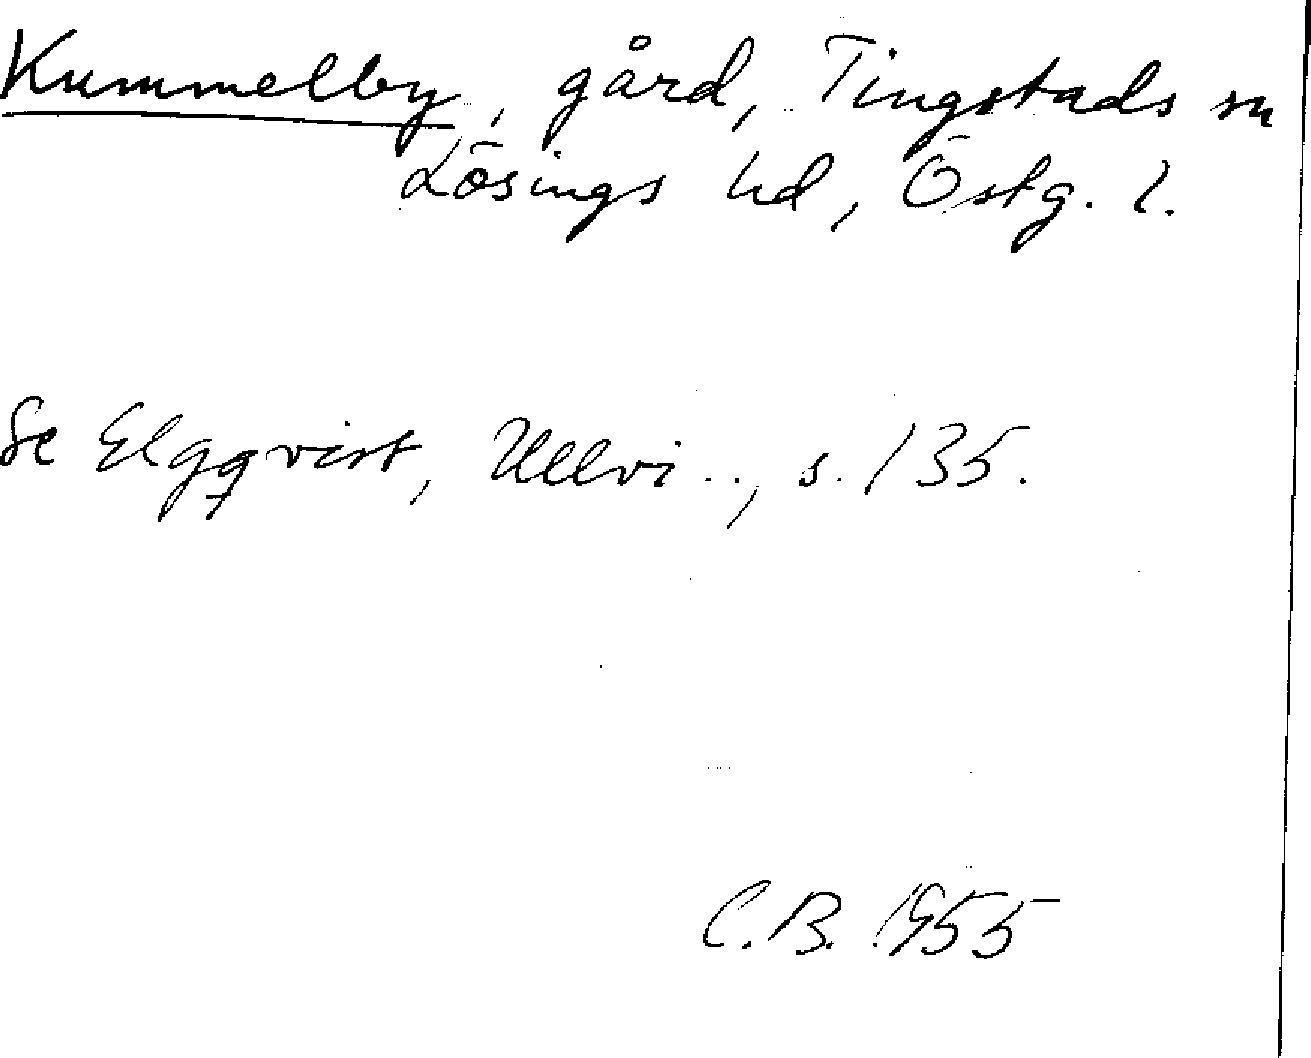 Kummelby, gård, Tingstads sn
Lösings hd, Östg. l.
Se Elgqvist, Ullvi.., s. 135.
C.B. 1955